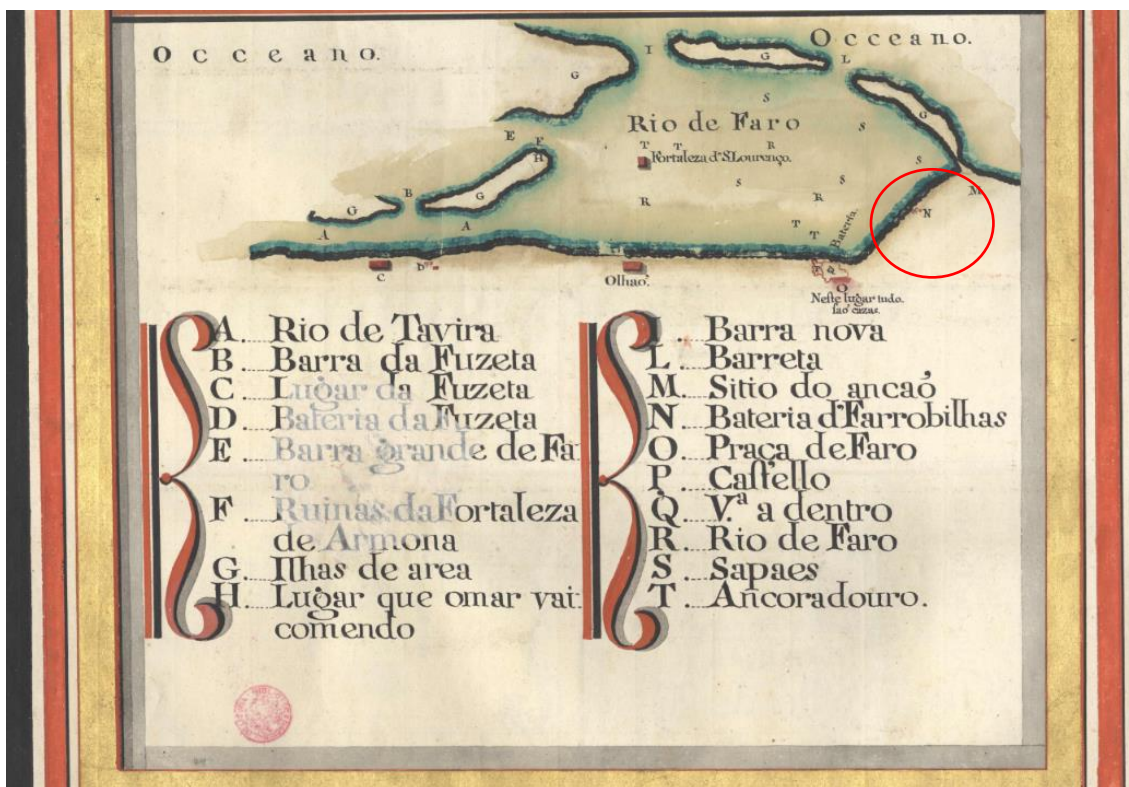 Occeano.
Occeano.
I
G
G
L
S
G
Rio de Faro
S
E
F
H
T T R
Fortaleza d'S Lourenço.
S
S
S
M
B
G
G
R
R
N
A
A
T
T T
Bateria.
C
D
Olhaõ.
P
O
Neste lugar tudo.
saõ cazas.
A. Rio de Tavira
B. Barra da Fuzeta
C. Lugar da Fuzeta
D. Bateria da Fuzeta
E. Barra grande de Fa:
ro
F. Ruinas da Fortaleza
de Armona
G. Ilhas de area
H. Lugar que omar vai:
comendo
I. Barra nova
L. Barreta
M. Sitio do ancaõ
N. Bateria d'Farrobilhas
O. Praça de Faro
P. Castello
Q. V.ª a dentro
R. Rio de Faro
S. Sapaes
T. Ancoradouro.